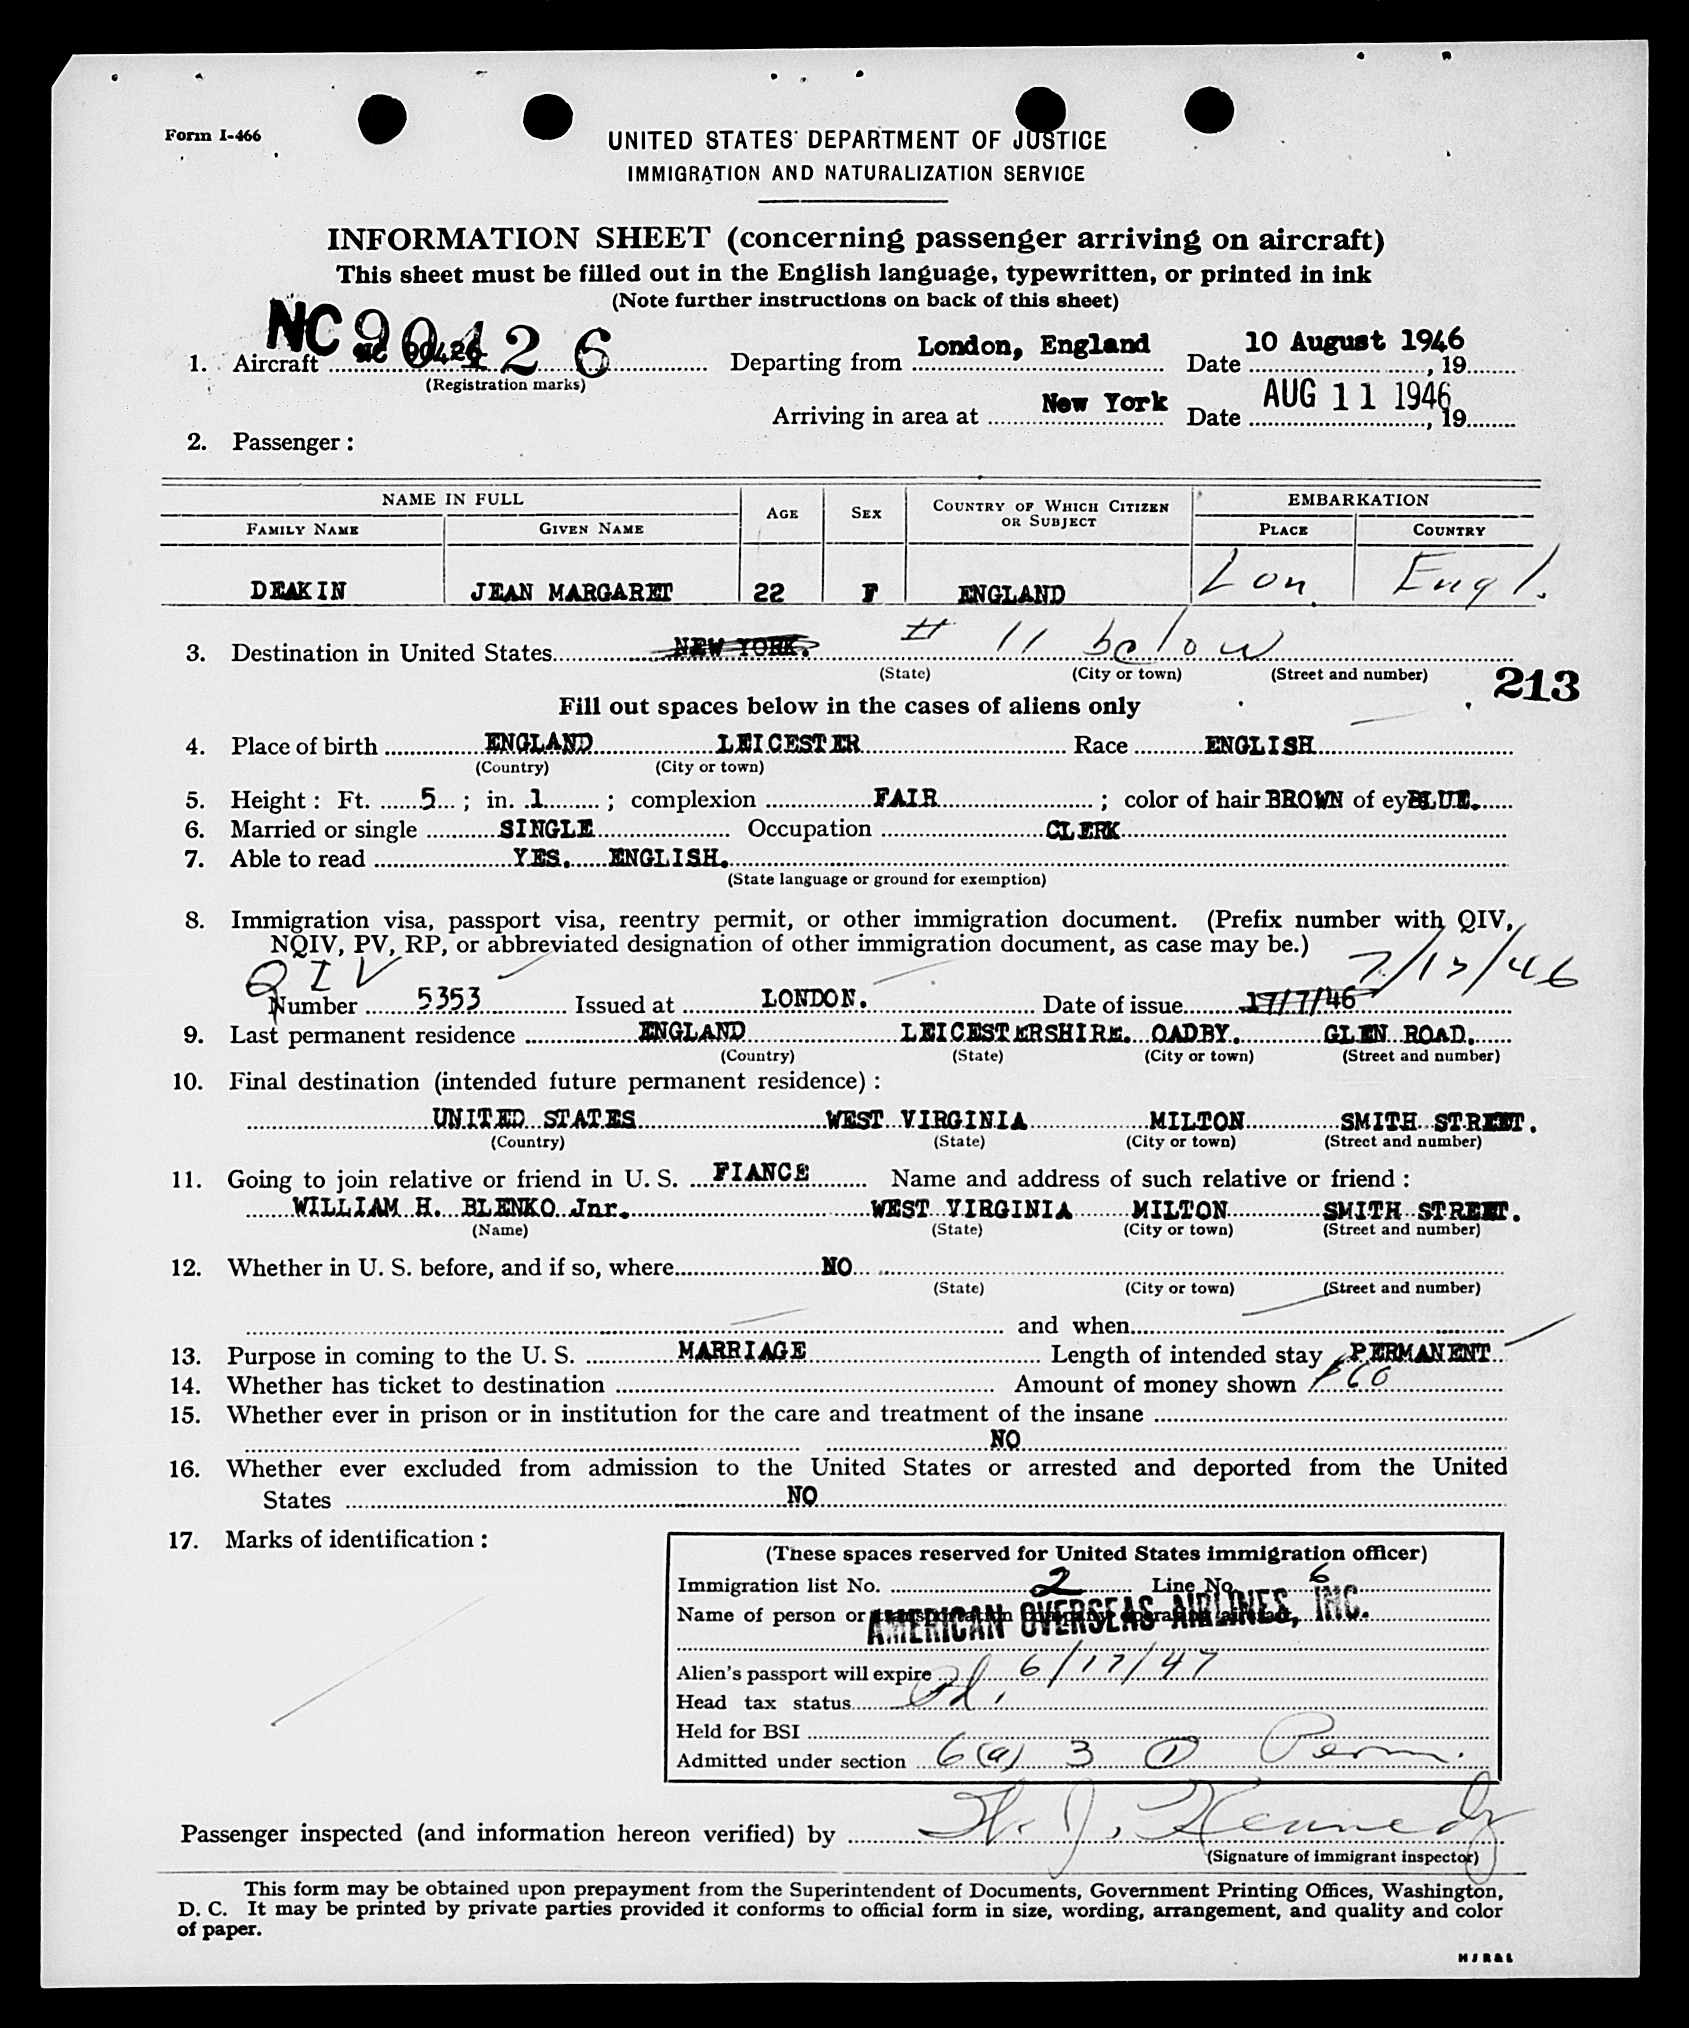 Form I-466
UNITED STATES DEPARTMENT OF JUSTICE
IMMIGRATION AND NATURALIZATION SERVICE
INFORMATION SHEET (concerning passenger arriving on aircraft)
This sheet must be filled out in the English language, typewritten, or printed in ink
(Note further instructions on back of this sheet)
NC90426
1. Aircraft NC 90426 Departing from London, England Date 10 August 1946, 19
(Registration marks)
Arriving in area at New York Date AUG 11 1946, 19
2. Passenger :
NAME IN FULL AGE SEX COUNTRY OF WHICH CITIZEN OR SUBJECT EMBARKATION
FAMILY NAME GIVEN NAME PLACE COUNTRY
DEAKIN JEAN MARGARET 22 F ENGLAND Lon. Engl.
3. Destination in United States NEW YORK. # 11 below
(State) (City or town) (Street and number)
213
Fill out spaces below in the cases of aliens only
4. Place of birth ENGLAND LEICESTER Race ENGLISH
(Country) (City or town)
5. Height : Ft. 5 ; in. 1 ; complexion FAIR ; color of hair BROWN of eyBLUE.
6. Married or single SINGLE Occupation CLERK
7. Able to read YES. ENGLISH.
(State language or ground for exemption)
8. Immigration visa, passport visa, reentry permit, or other immigration document. (Prefix number with QIV,
NQIV, PV, RP, or abbreviated designation of other immigration document, as case may be.)
QIV 7/17/46
Number 5353 Issued at LONDON. Date of issue 17/7/46
9. Last permanent residence ENGLAND LEICESTERSHIRE. OADBY. GLEN ROAD.
(Country) (State) (City or town) (Street and number)
10. Final destination (intended future permanent residence) :
UNITED STATES WEST VIRGINIA MILTON SMITH STREET.
(Country) (State) (City or town) (Street and number)
11. Going to join relative or friend in U. S. FIANCE Name and address of such relative or friend :
WILLIAM H. BLENKO Jnr. WEST VIRGINIA MILTON SMITH STREET.
(Name) (State) (City or town) (Street and number)
12. Whether in U. S. before, and if so, where NO
(State) (City or town) (Street and number)
and when
13. Purpose in coming to the U. S. MARRIAGE Length of intended stay PERMANENT
14. Whether has ticket to destination Amount of money shown 60
15. Whether ever in prison or in institution for the care and treatment of the insane
NO
16. Whether ever excluded from admission to the United States or arrested and deported from the United
States NO
17. Marks of identification :
(These spaces reserved for United States immigration officer)
Immigration list No. 2 Line No. 6
Name of person or transportation company operating aircraft AMERICAN OVERSEAS AIRLINES, INC.
Alien's passport will expire 6/17/47
Head tax status Pd.
Held for BSI
Admitted under section 6(a) 3 (1) Perm.
Passenger inspected (and information hereon verified) by H. J. Kennedy
(Signature of immigrant inspector)
This form may be obtained upon prepayment from the Superintendent of Documents, Government Printing Offices, Washington,
D. C. It may be printed by private parties provided it conforms to official form in size, wording, arrangement, and quality and color
of paper.